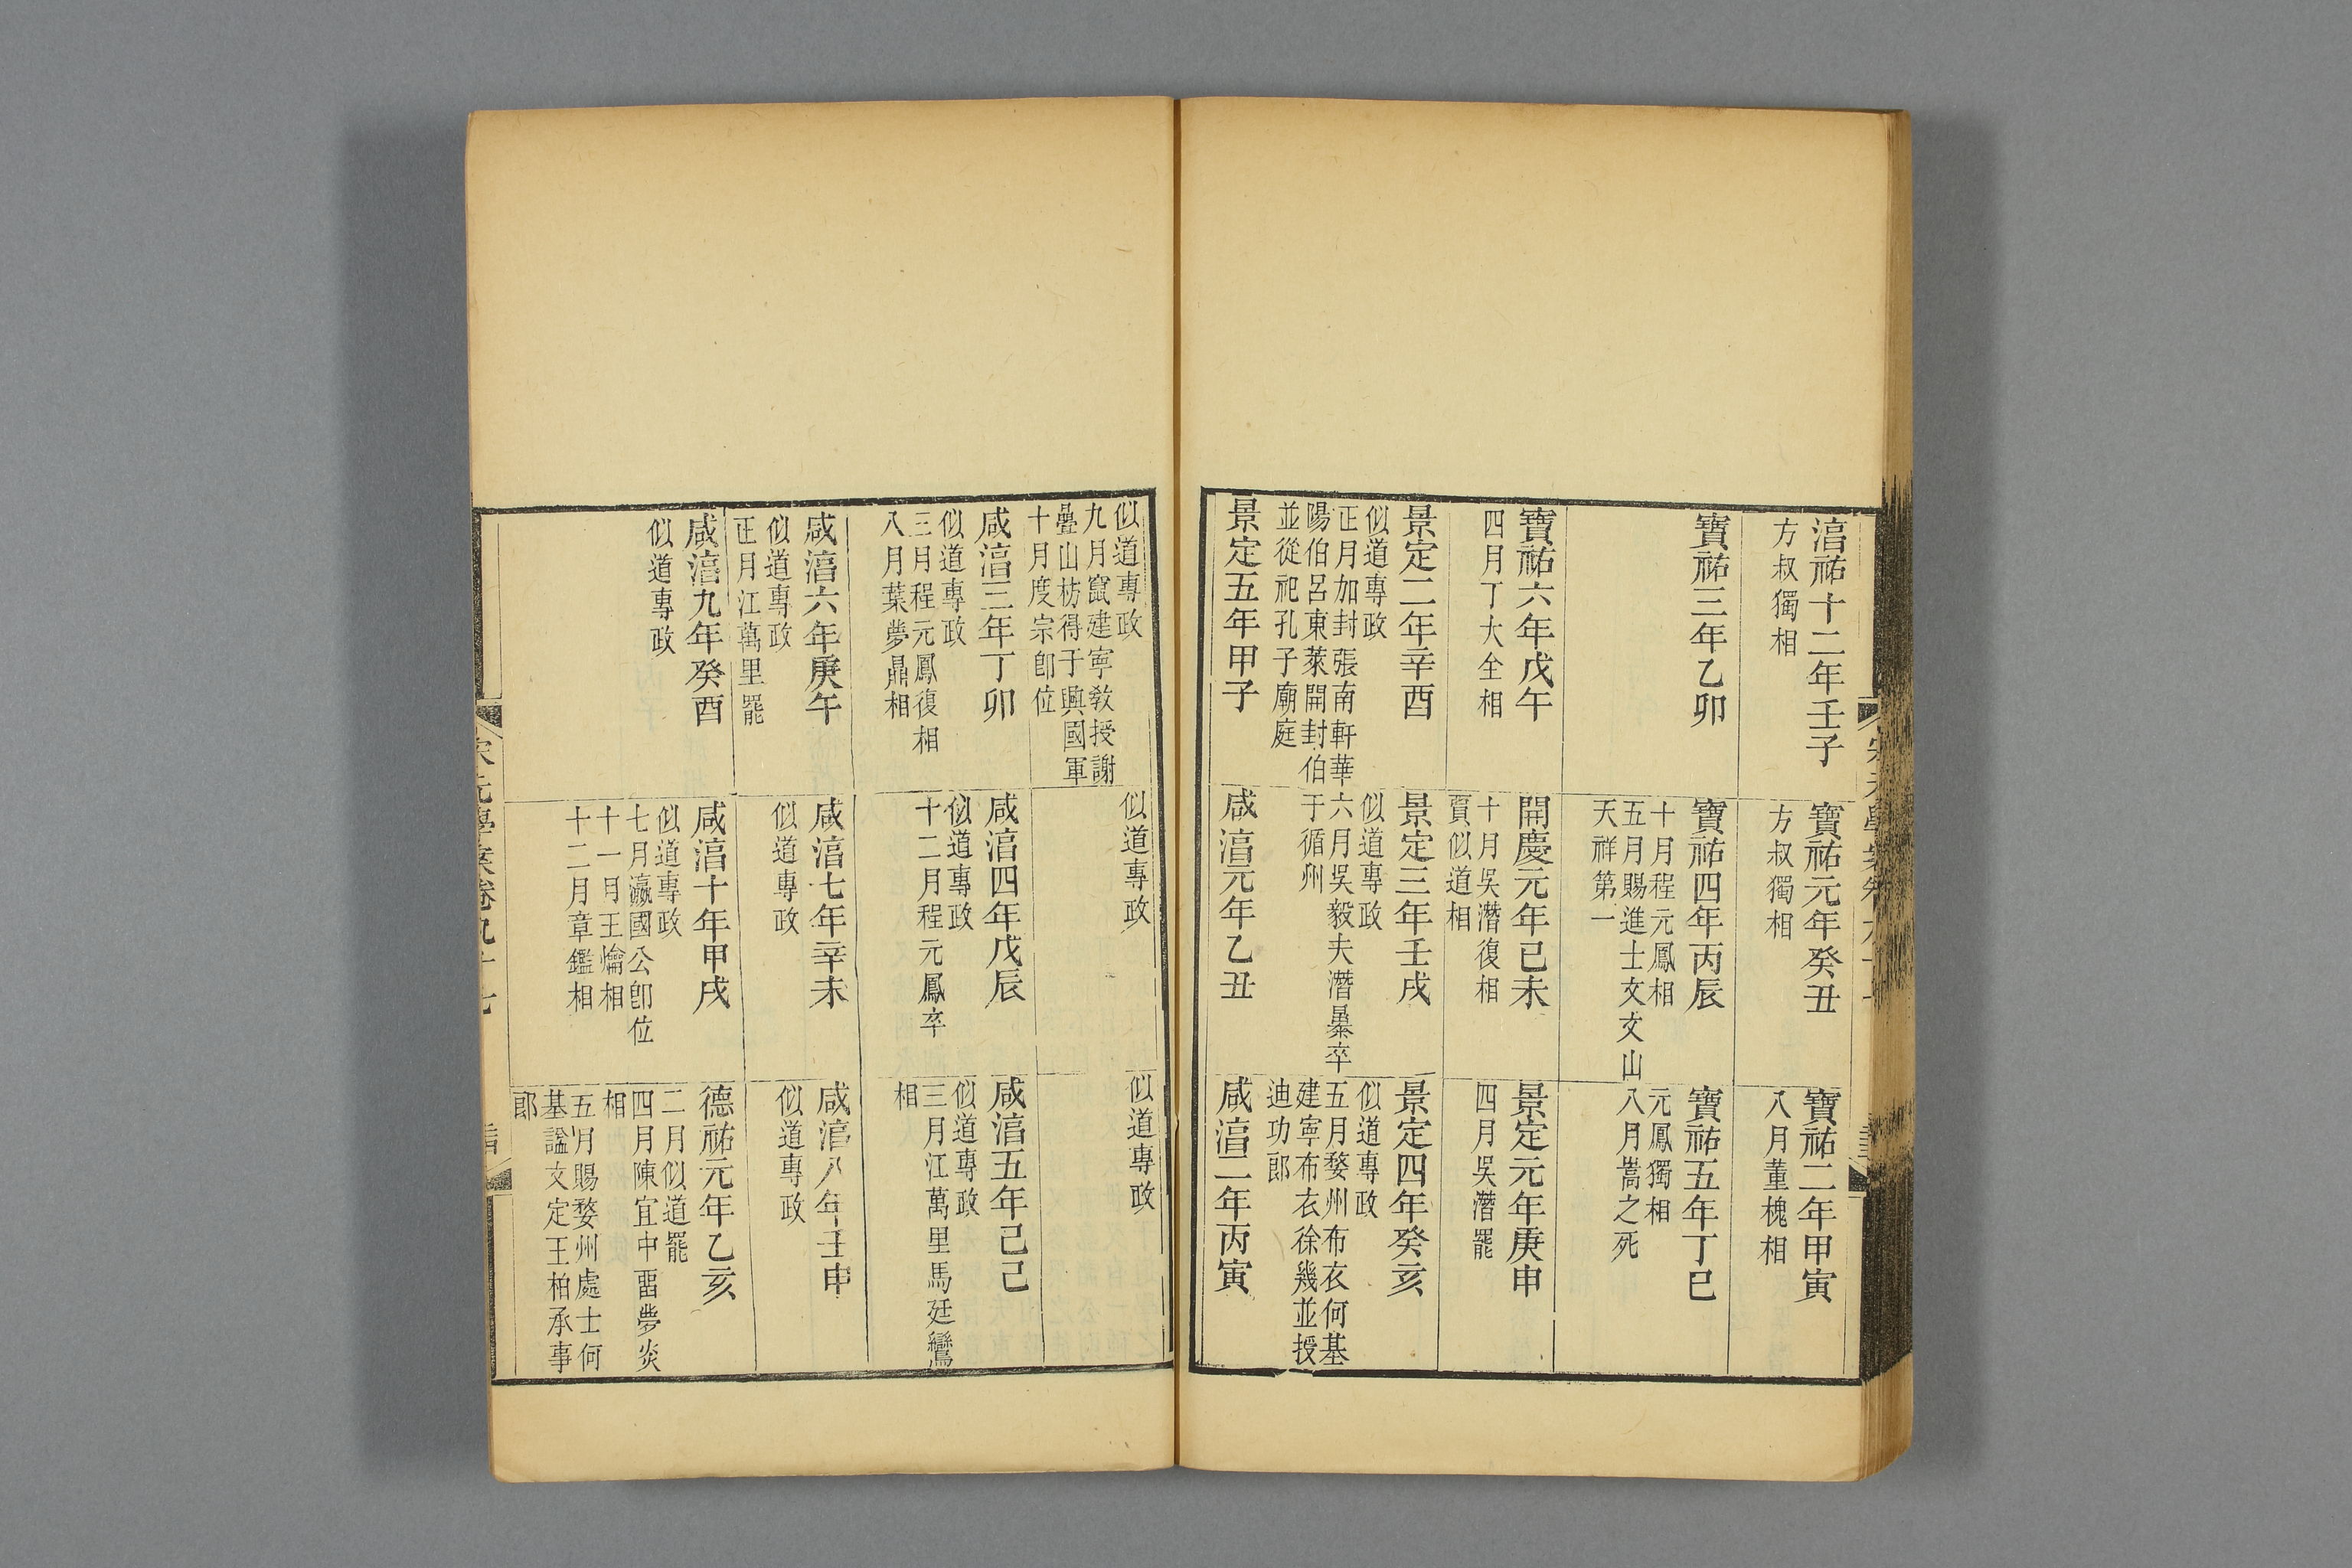 湻祐十二年壬子
方叔獨相
寶祐元年癸丑
方叔獨相
寶祐二年甲寅
八月董槐相
寶祐三年乙卯
寶祐四年丙辰
十月程元鳳相
五月賜進士文文山
天祥第一
寶祐五年丁巳
元鳳獨相
八月嵩之死
寶祐六年戊午
四月丁大全相
開慶元年己未
十月吳潛復相
賈似道相
景定元年庚申
四月吳潛罷
景定二年辛酉
似道專政
正月加封張南軒華
陽伯呂東萊開封伯
並從祀孔子廟庭
景定三年壬戌
似道專政
六月吳毅夫潛暴卒
于循州
景定四年癸亥
似道專政
五月婺州布衣何基
建寧布衣徐幾並授
迪功郎
景定五年甲子
咸湻元年乙丑
咸湻二年丙寅
似道專政
九月竄建寧敎授謝
疊山枋得于興國軍
十月度宗卽位
似道專政
似道專政
咸湻三年丁卯
似道專政
三月程元鳳復相
八月葉夢鼎相
咸湻四年戊辰
似道專政
十二月程元鳳卒
咸湻五年己巳
似道專政
三月江萬里馬廷鸞
相
咸湻六年庚午
似道專政
正月江萬里罷
咸湻七年辛未
似道專政
咸湻八年壬申
似道專政
咸湻九年癸酉
似道專政
咸湻十年甲戌
似道專政
七月瀛國公卽位
十一月王爚相
十二月章鑑相
德祐元年乙亥
二月似道罷
四月陳宜中畱夢炎
相
五月賜婺州處士何
基謚文定王柏承事
郎
宋元學案卷九十七